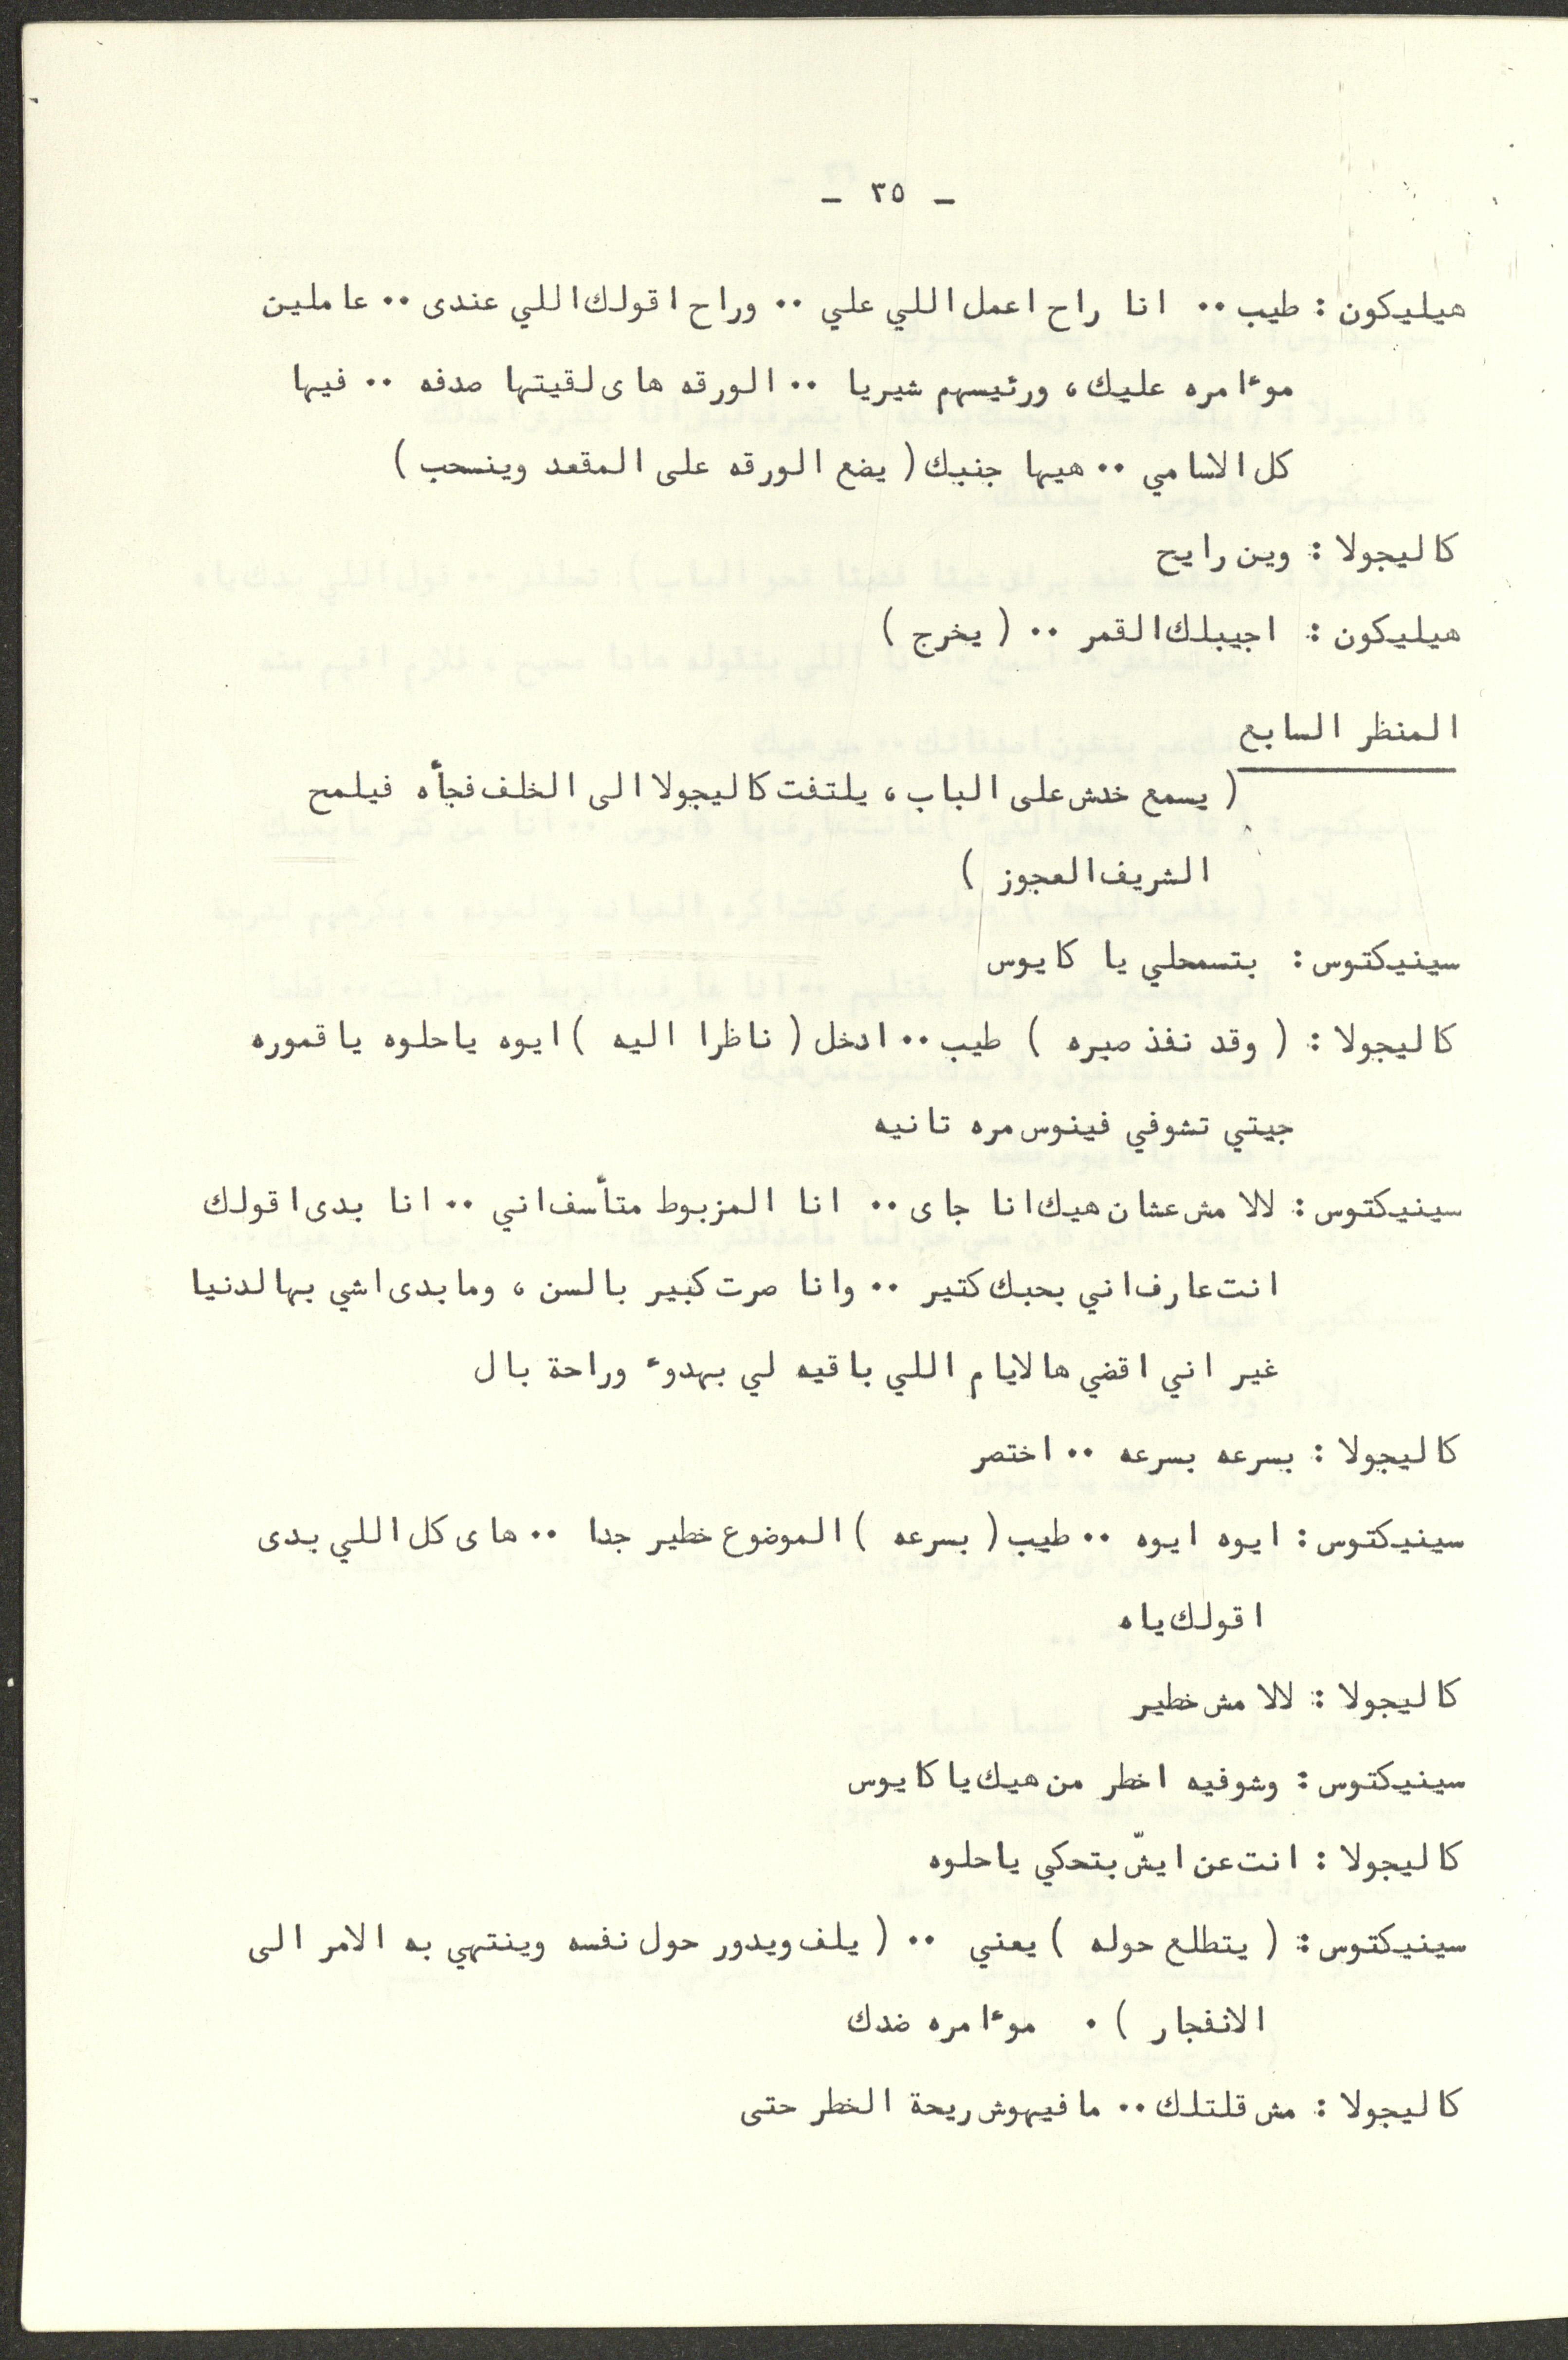 ـ ٣٥ ـ
هيليكون : طيب ٠٠ انا راح اعمل اللي علي ٠٠ وراح اقولك اللي عندى ٠٠ عاملين
موءامره عليك ، ورئيسهم شيريا ٠٠ الورقه هاى لقيتها صدفه ٠٠ فيها
كل الاسامي ٠٠ هيها جنبك ( يضع الورقه على المقعد وينسحب )
كاليجولا : وين رايح
هيليكون : اجيبلك القمر ٠٠ ( يخرج )
المنظر السابع
( يسمع خدش على الباب ، يلتفت كاليجولا الى الخلف فجأه فيلمح
الشريف العجوز )
سينيكتوس : بتسمحلي يا كايوس
كاليجولا : ( وقد نفذ صبره ) طيب ٠٠ ادخل ( ناظرا اليه ) ايوه ياحلوه ياقموره
جيتي تشوفي فينوس مره تانيه
سينيكتوس : للا مش عشان هيك انا جاى ٠٠ انا المزبوط متأسف اني ٠٠ انا بدى اقولك
انت عارف اني بحبك كتير ٠٠ وانا صرت كبير بالسن ، وما بدى اشي بهالدنيا
غير اني اقضي هالايام اللي باقيه لي بهدوء وراحة بال
كاليجولا : بسرعه بسرعه ٠٠ اختصر
سينيكتوس : ايوه ايوه ٠٠ طيب ( بسرعه ) الموضوع خطير جدا ٠٠ هاى كل اللي بدى
اقولك ياه
كاليجولا : للا مش خطير
سينيكتوس : وشو فيه اخطر من هيك يا كايوس
كاليجولا : انت عن ايشّ بتحكي ياحلوه
سينيكتوس : ( يتطلع حوله ) يعني ٠٠ ( يلف ويدور حول نفسه وينتهي به الامر الى
الانفجار ) ٠ موءامره ضدك
كاليجولا : مش قلتلك ٠٠ ما فيهوش ريحة الخطر حتى